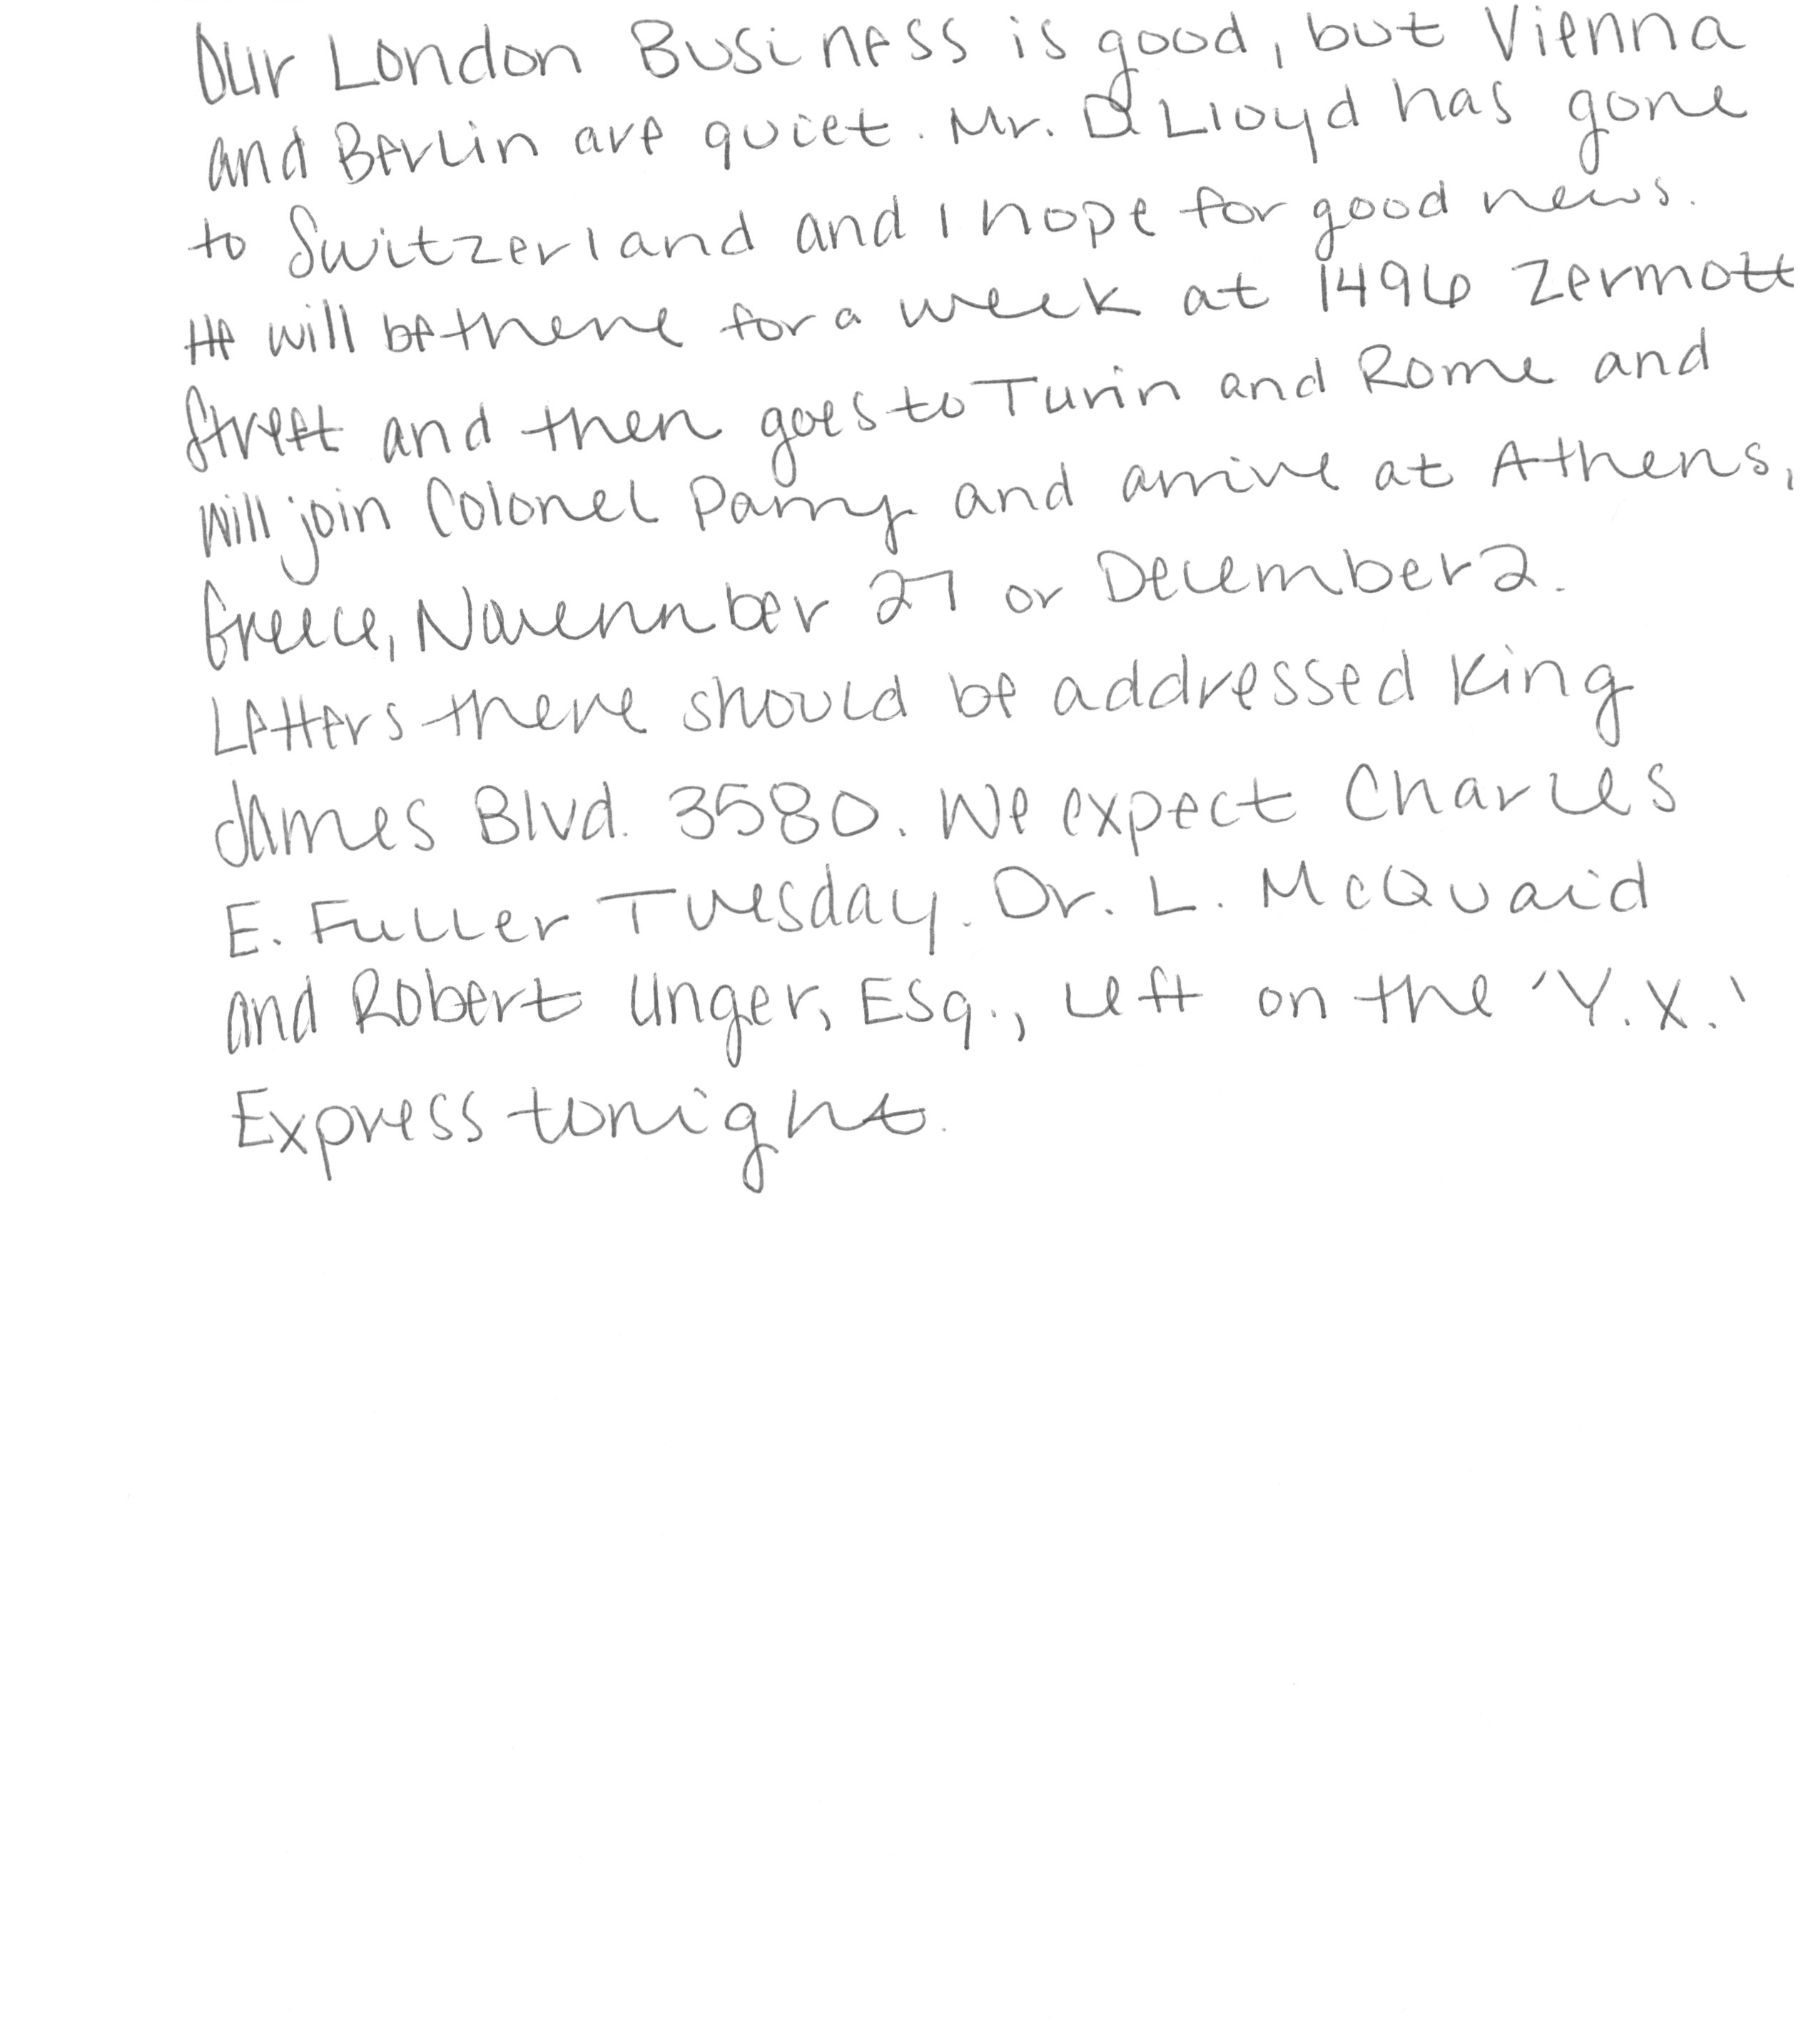 Our London Business is good, but Vienna
and Berlin are quiet. Mr. D. Lloyd has gone
to Switzerland and I hope for good news.
He will be there for a week at 1496 Zermott
Street and then goes to Turin and Rome and
will join Colonel Parry and arrive at Athens,
Greece, November 27 or December 2.
Letters there should be addressed King
James Blvd. 3580. We expect Charles
E. Fuller Tuesday. Dr. L. McQuaid
and Robert Unger, Esq., left on the 'Y.X.'
Express tonight.